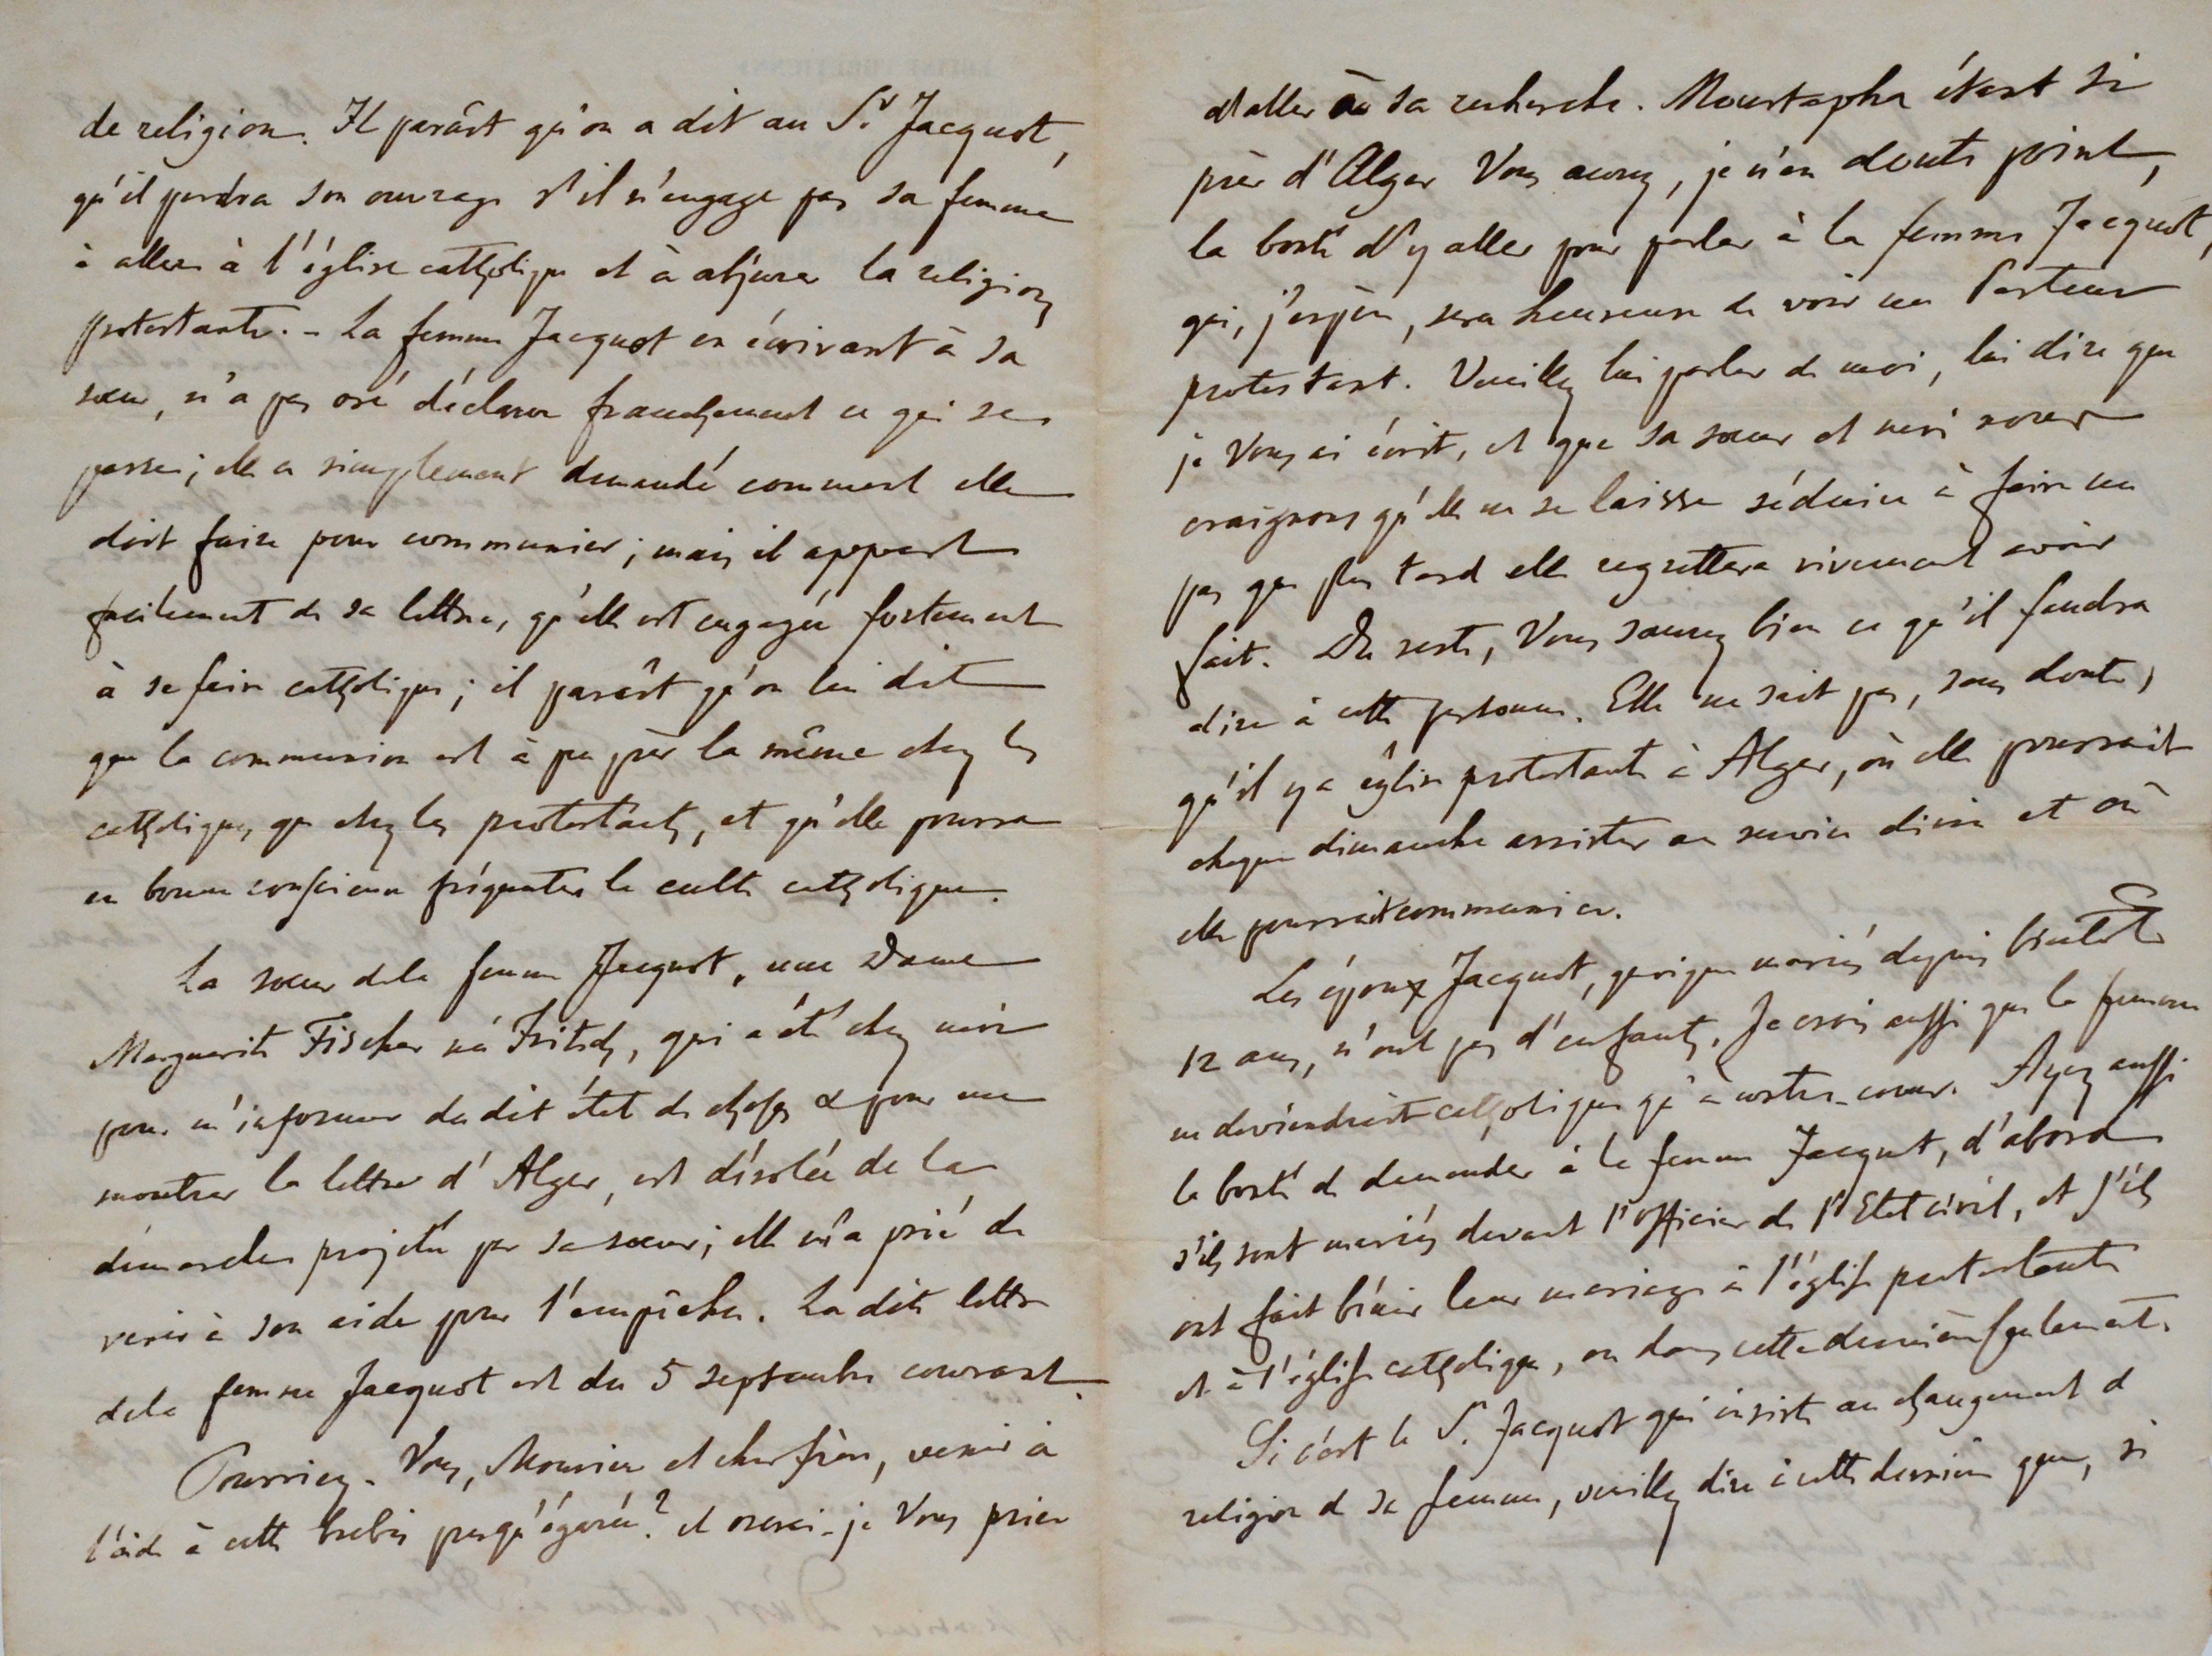 de religion. Il paraît qu'on a dit au Sr. Jacquot,
qu'il perdra son ouvrage s'il n'engage pas sa femme
à aller à l'église catholique et à abjurer la religion
protestante. - La femme Jacquot en écrivant à sa
sœur, n'a pas osé déclarer franchement ce qui se
passe; elle a simplement demandé comment elle
doit faire pour communier; mais il appert
facilement de sa lettre, qu'elle est engagée fortement
à se faire catholique; il paraît qu'on lui dit
que la communion est à peu près la même chez les
catholiques que chez les protestants, et qu'elle pourra
en bonne conscience fréquenter le culte catholique.
La sœur de la femme Jacquot, une Dame
Marguerite Fischer née Fritsch, qui a été chez moi
pour m'informer du dit état de choses & pour me
montrer la lettre d'Alger, est désolée de la
démarche projetée par sa sœur; elle m'a prié de
venir à son aide pour l'empêcher. La dite lettre
de la femme Jacquot est du 5 septembre courant.
Pourriez-Vous, Monsieur et cher frère, venir à
l'aide à cette brebis presqu'égarée? et oserai-je Vous prier
d'aller à sa recherche. Moustapha étant si
près d'Alger Vous aurez, je n'en doute point,
la bonté d'y aller pour parler à la femme Jacquot,
qui, j'espère, sera heureuse de voir un Pasteur
protestant. Veuillez lui parler de moi, lui dire que
je Vous ai écrit, et que sa sœur et moi nous
craignons qu'elle ne se laisse séduire à faire un
pas que plus tard elle regrettera vivement avoir
fait. Du reste, Vous saurez bien ce qu'il faudra
dire à cette personne. Elle ne sait pas, sans doute,
qu'il y a église protestante à Alger, où elle pourrait
chaque dimanche assister au service divin et où
elle pourrait communier.
Les époux Jacquot, quoique mariés depuis bientôt
12 ans, n'ont pas d'enfants. Je crois aussi que la femme
ne deviendrait catholique qu'à contre-cœur. Ayez aussi
la bonté de demander à la femme Jacquot, d'abord
s'ils sont mariés devant l'officier de l'Etat civil, et s'ils
ont fait bénir leur mariage à l'église protestante
et à l'église catholique, ou dans cette dernière seulement.
Si c'est le S. Jacquot qui insiste au changement d
religion d sa femme, veuillez dire à cette dernière que, si